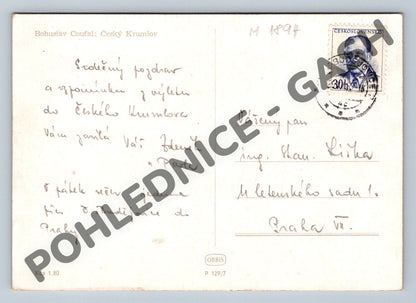 Bohuslav Coufal: Český Krumlov
M 1894
ČESKOSLOVENSKO
30h
Srdečný pozdrav
a vzpomínku z výletu
do Českého Krumlova
Vám zasílá Váš Zdeněk
V pátek
přes do
Prahy.
Vážený pan
ing. Stan. Liška
M letenského sadu 1.
Praha VII.
POHLEDNICE - GASH
Kčs 1.80
ORBIS
P 129/7